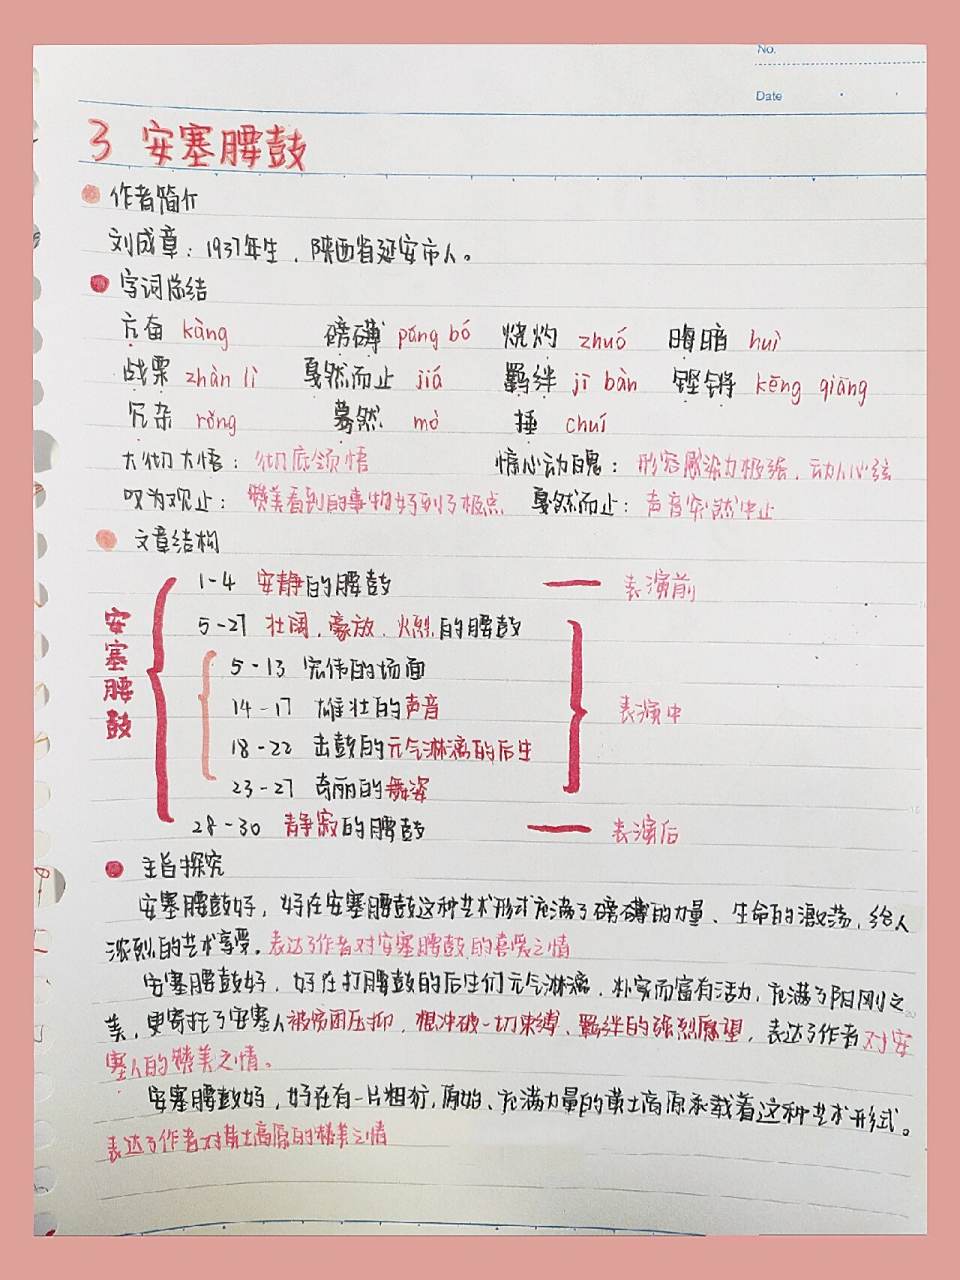 No.
Date
3 安塞腰鼓
作者简介
刘成章：1937年生，陕西省延安市人。
字词总结
亢奋 kàng 磅礴 páng bó 烧灼 zhuó 晦暗 huì
战栗 zhàn lì 戛然而止 jiá 羁绊 jī bàn 铿锵 kēng qiāng
冗杂 rǒng 蓦然 mò 捶 chuí
大彻大悟：彻底领悟 惊心动魄：形容感染力极强，动人心弦
叹为观止：赞美看到的事物好到了极点 戛然而止：声音突然中止
文章结构
安塞腰鼓
1-4 安静的腰鼓 — 表演前
5-27 壮阔，豪放，火烈的腰鼓
5-13 宏伟的场面
14-17 雄壮的声音 表演中
18-22 击鼓的元气淋漓的后生
23-27 奇丽的舞姿
28-30 静寂的腰鼓 — 表演后
主旨探究
安塞腰鼓好，好在安塞腰鼓这种艺术形式充满了磅礴的力量、生命的激荡，给人
浓烈的艺术享受。表达了作者对安塞腰鼓的喜爱之情
安塞腰鼓好，好在打腰鼓的后生们元气淋漓，朴实而富有活力，充满了阳刚之
美，更寄托了安塞人被贫困压抑，想冲破一切束缚、羁绊的强烈愿望，表达了作者对安
塞人的赞美之情。
安塞腰鼓好，好在有一片粗犷，原始、充满力量的黄土高原承载着这种艺术形式。
表达了作者对黄土高原的赞美之情